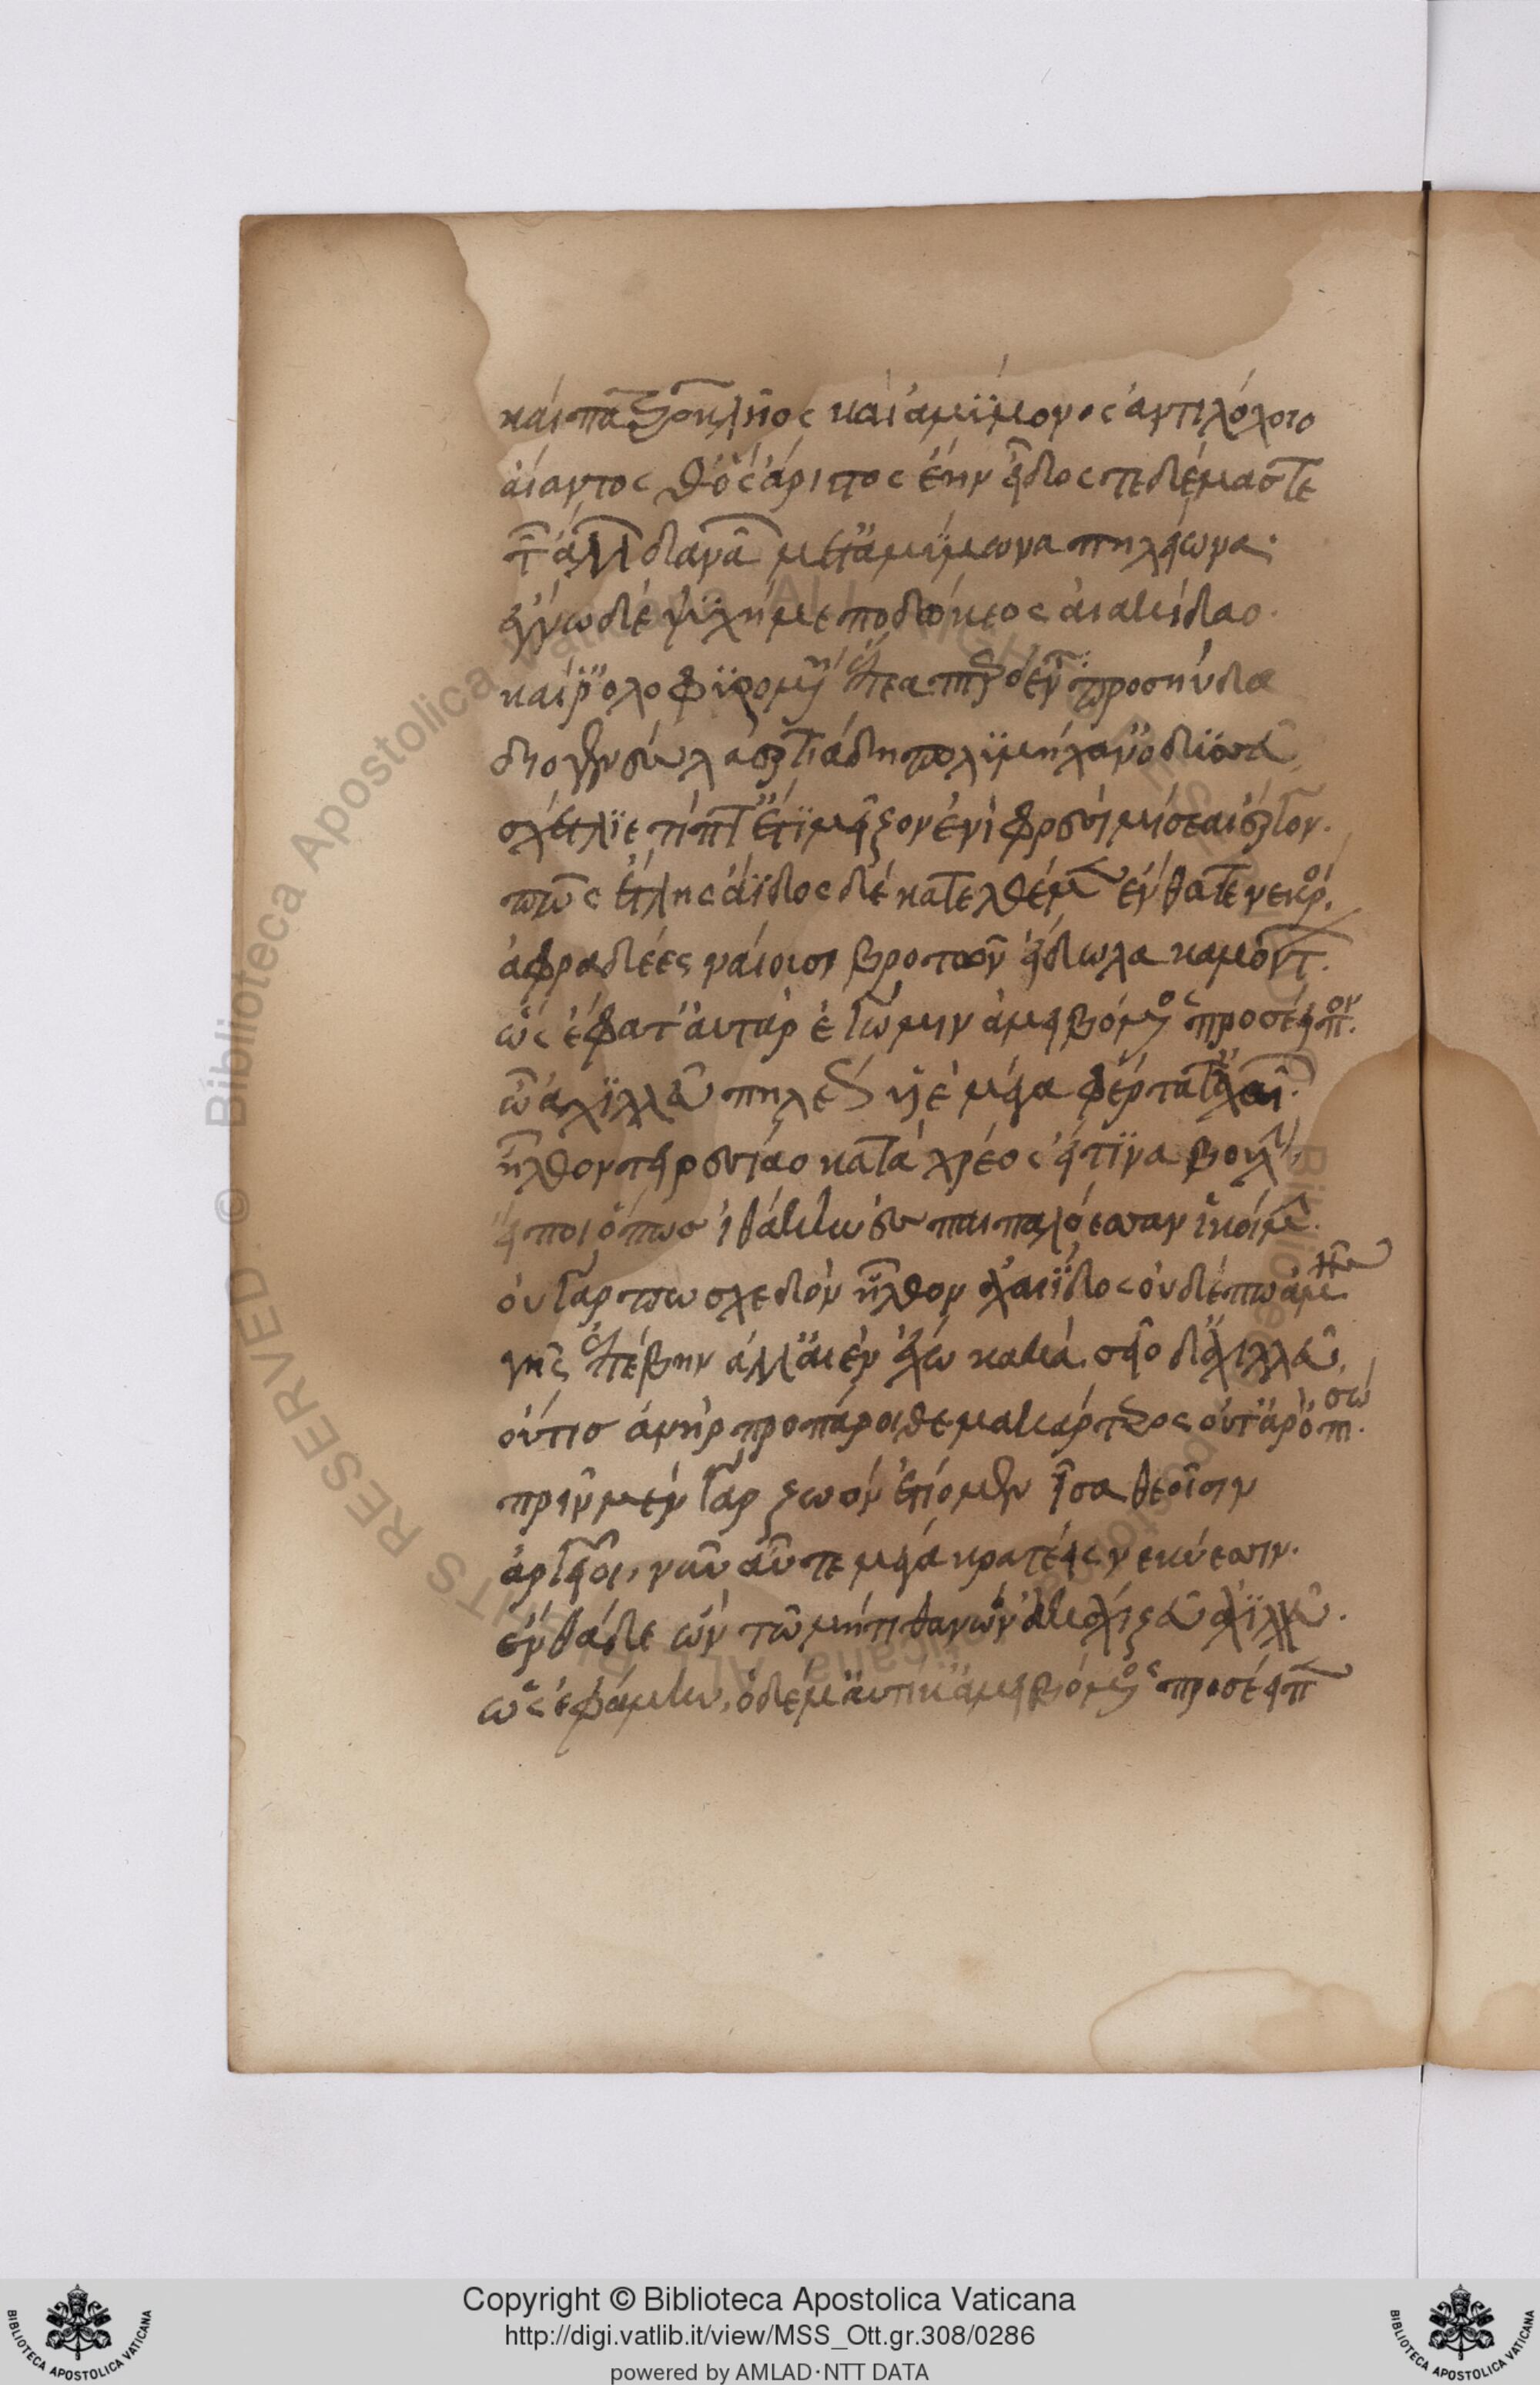 καὶ πατροκλῆος καὶ ἀμύμονος ἀντιλόχοιο
αἴαντος θ' ὃς ἄριστος ἔην εἶδος τε δέμας τε
τῶν ἄλλων δαναῶν μετ' ἀμύμωνα πηλείωνα·
ἔγνω δὲ ψυχή με ποδώκεος αἰακίδαο·
καί ῥ' ὀλοφυρομένη ἔπεα πτερόεντα προσηύδα
διογενὲς λαερτιάδη πολυμήχαν' ὀδυσσεῦ
σχέτλιε τίπτ' ἔτι μεῖζον ἐνὶ φρεσὶ μήσεαι ἔργον·
πῶς ἔτλης ἄϊδος δὲ κατελθέμεν ἔνθα τε νεκροὶ
ἀφραδέες ναίουσι βροτῶν εἴδωλα καμόντων·
ὣς ἔφατ' αὐτὰρ ἐγώ μιν ἀμειβόμενος προσέειπον·
ὦ ἀχιλλεῦ πηλέος υἱὲ μέγα φέρτατ' ἀχαιῶν·
ἦλθον τειρεσίαο κατὰ χρέος εἴ τινα βουλὴν
εἴποι ὅπως ἰθάκην ἐς παιπαλόεσσαν ἱκοίμην·
οὐ γάρ πω σχεδὸν ἦλθον ἀχαιΐδος οὐδέ πω ἁμῆς
γῆς ἐπέβην ἀλλ' αἰὲν ἔχω κακά· σεῖο δ' ἀχιλλεῦ,
οὔτις ἀνὴρ προπάροιθε μακάρτερος οὔτ' ἄρ' ὀπίσσω·
πρὶν μὲν γάρ ζωὸν ἐτίομεν ἶσα θεοῖσιν
ἀργεῖοι, νῦν αὖτε μέγα κρατέεις νεκύεσσιν·
ἐνθάδε ὤν τῶ μήτι θανὼν ἀκαχίζευ ἀχιλλεῦ·
ὣς ἐφάμην, ὁ δέ μ' αὐτίκ' ἀμειβόμενος προσέειπεν
Copyright © Biblioteca Apostolica Vaticana
http://digi.vatlib.it/view/MSS_Ott.gr.308/0286
powered by AMLAD·NTT DATA